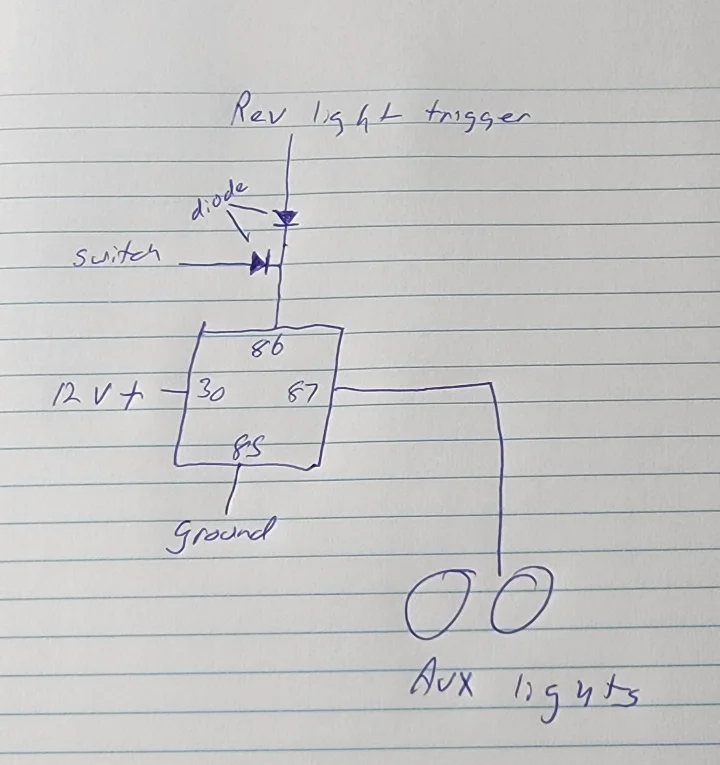 Rev light trigger
diode
switch
86
12 V +
30
87
85
ground
Aux lights